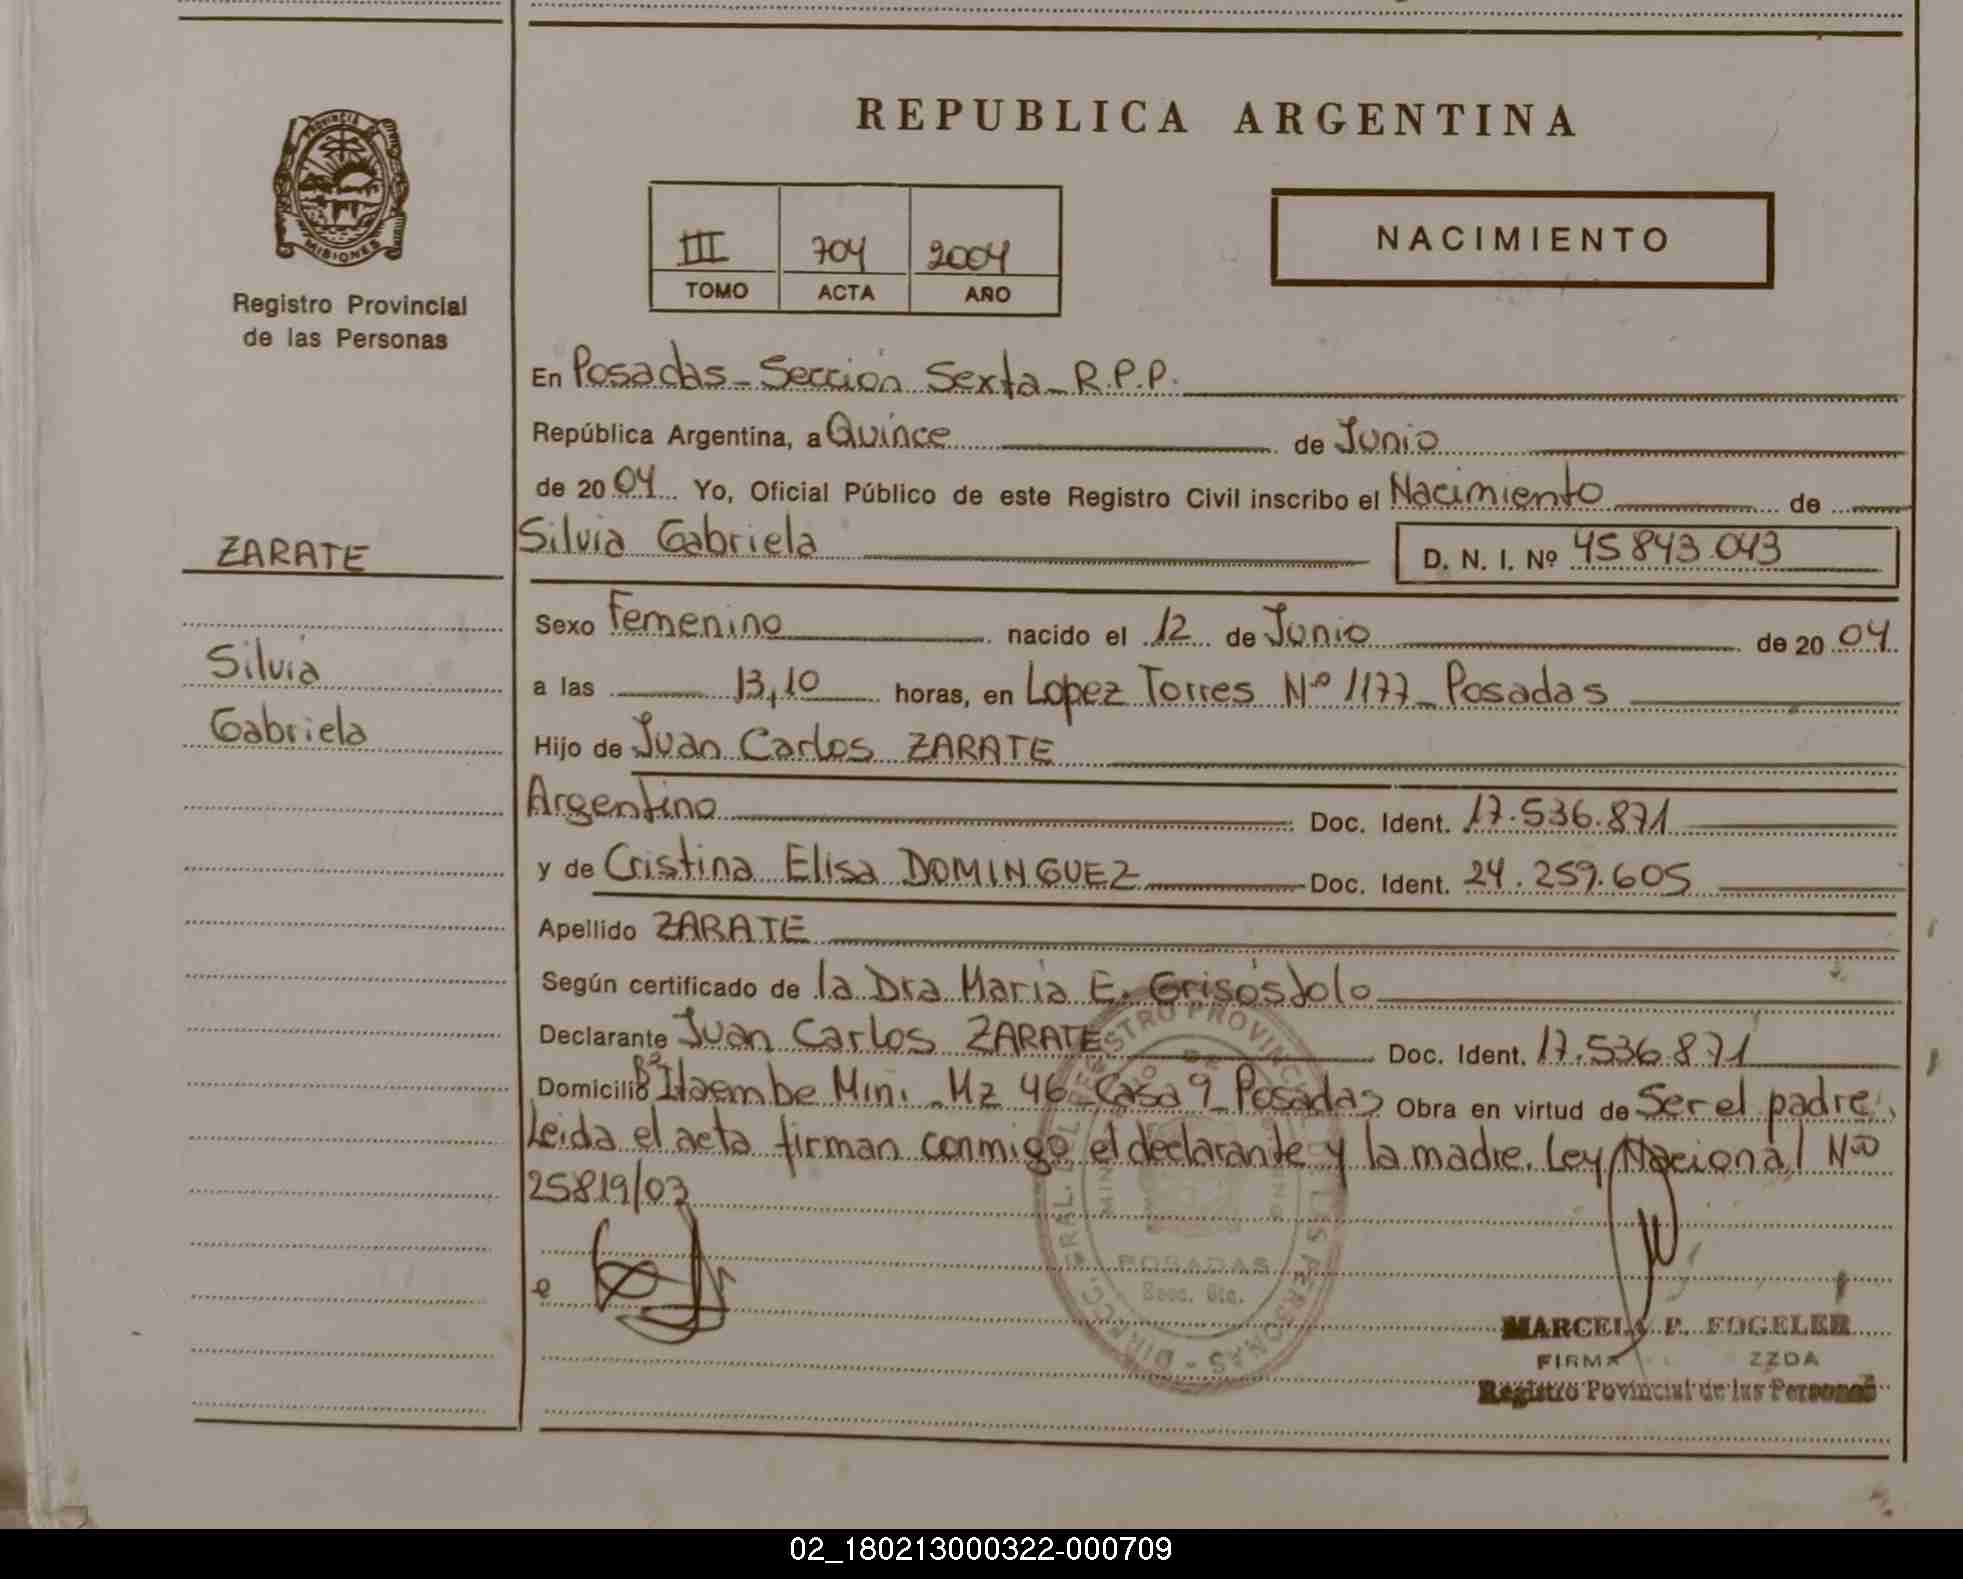 REPUBLICA ARGENTINA
PROVINCIA DE
MISIONES
Registro Provincial
de las Personas
III 704 2004
TOMO ACTA AÑO
NACIMIENTO
En Posadas - Sección Sexta - R.P.P.
República Argentina, a Quince de Junio
de 2004 Yo, Oficial Público de este Registro Civil inscribo el Nacimiento de
ZARATE
Silvia
Gabriela
Silvia Gabriela D. N. I. Nº 45 843.043
Sexo Femenino nacido el 12 de Junio de 2004
a las 13,10 horas, en Lopez Torres Nº 1177 - Posadas
Hijo de Juan Carlos ZARATE
Argentino Doc. Ident. 17.536.871
y de Cristina Elisa DOMINGUEZ Doc. Ident. 24.259.605
Apellido ZARATE
Según certificado de la Dra María E. Grisóstolo
Declarante Juan Carlos ZARATE Doc. Ident. 17.536.871
Domicilio Bº Itaembe Mini - Mz 46 - Casa 9 - Posadas Obra en virtud de Ser el padre,
Leida el acta firman conmigo el declarante y la madre. Ley Nacional Nº
25819/03
DIRECC. GRAL. DEL REGISTRO PROVINCIAL DE LAS PERSONAS
POSADAS
Secc. 6ta.
MARCELA P. FOGELER
FIRMA ZZDA
Registro Povincial de las Personas
02_180213000322-000709